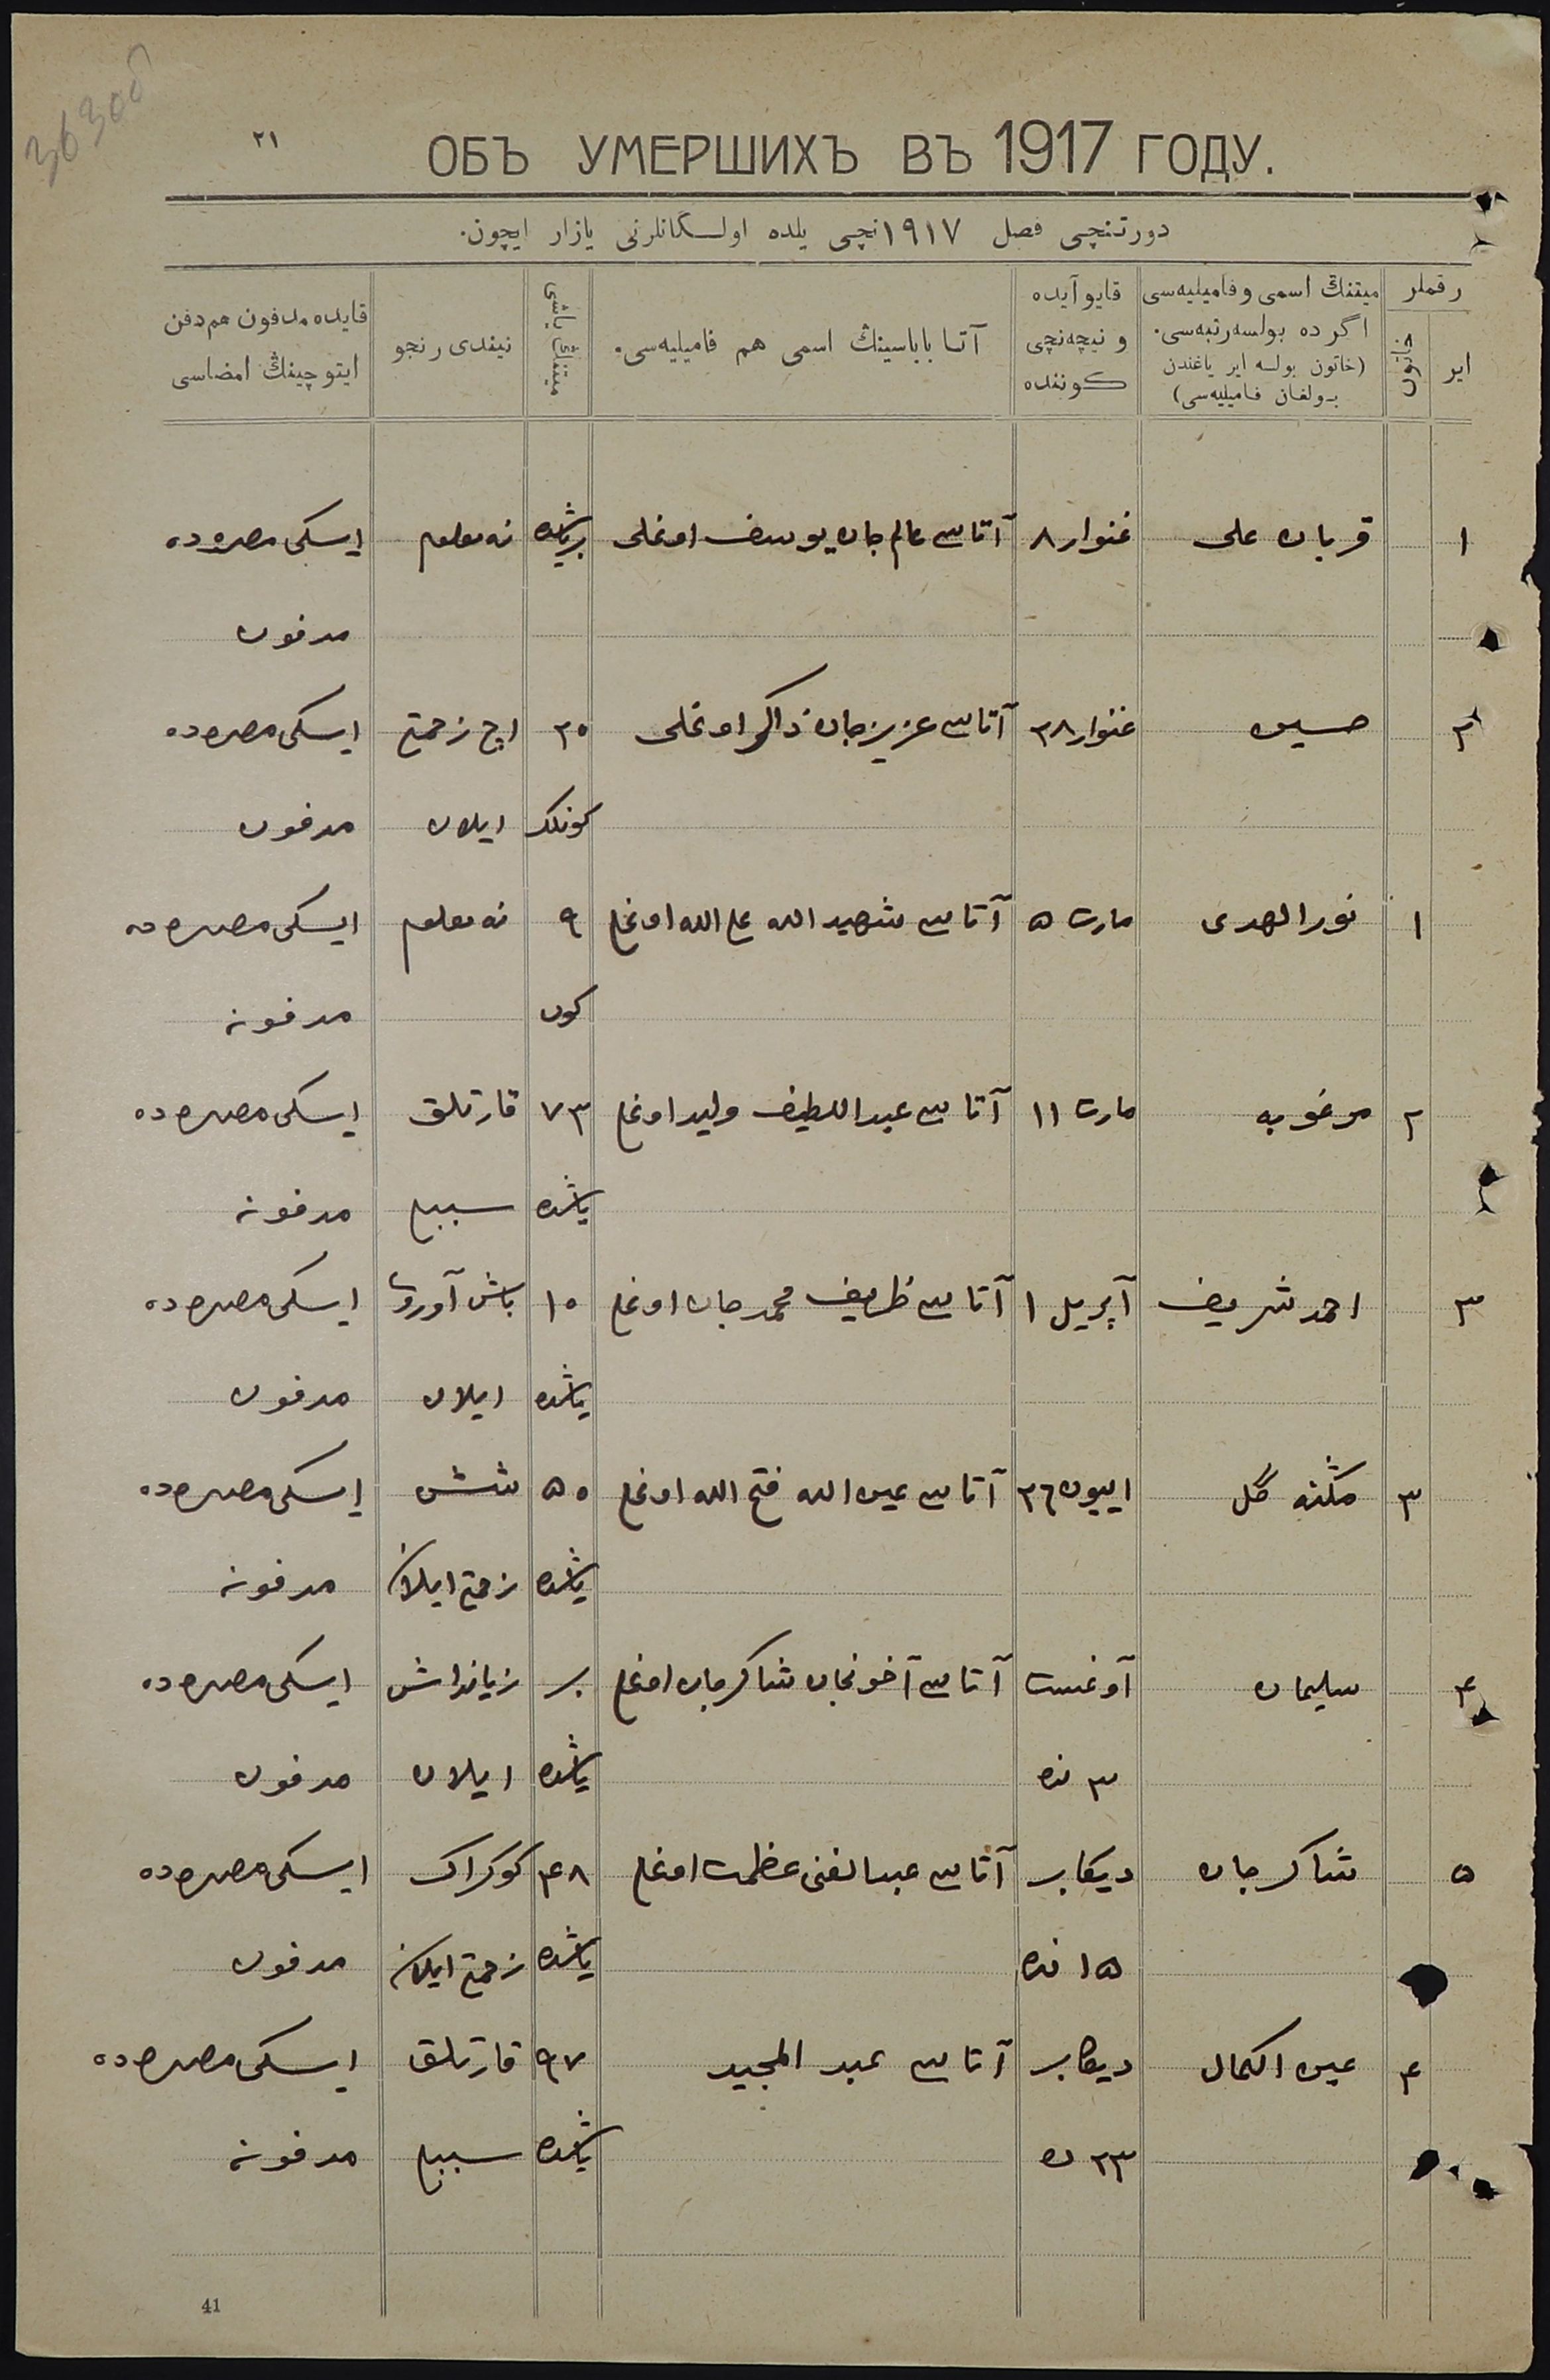 ٢١
ОБЪ УМЕРШИХЪ ВЪ 1917 ГОДУ.
دورتنچی فصل ١٩١٧نچی یلده اولــگانلرنی یازار ایچون.
رقملر
ایر
خاتون
میتنڭ اسمی و فامیلیه‌سی
اگر ده بولسه رتبه‌سی.
(خاتون بولسه ایر یاغندن
بـولغان فـامیلیه‌سی)
قایو آیده
و نیچه‌نچی
کـوننده
آتـا باباسینڭ اسمی هم فامیلیه‌سی.
میتنڭ یاشی
نیندی رنجو
قایده مدفون هم دفن
ایتوچینڭ امضاسی
١ قربان علی غنوار ٨ آتاسی عالم جان یوسف اوغلی بر یاشده نه معلوم ایسکی مصرده
مدفون
٢ حسین غنوار ٢٨ آتاسی عزیز جان ذاکر اوغلی ٢٥ اچ زحمتی ایسکی مصرده
کونلک ایلان مدفون
١ نور الهدی مارت ٥ آتاسی شهید الله اوغلی ٩ نه معلوم ایسکی مصرده
کون مدفونه
٢ مرغوبه مارت ١١ آتاسی عبد اللطیف ولید اوغلی ٧٣ قارتلق ایسکی مصرده
یاشده سببلی مدفونه
٣ احمد شریف آپریل ١ آتاسی ظریف محمد جان اوغلی ١٥ باش آوروی ایسکی مصرده
یاشده ایلان مدفون
٣ گل اییون ٢٦ آتاسی عین الله فتح الله اوغلی ٥٥ شش ایسکی مصرده
یاشده زحمتی ایلان مدفونه
٤ سلیمان آوغست آتاسی آخونجان شاکر جان اوغلی بر ایسکی مصرده
٣ نده یاشده ایلان مدفون
٥ شاکر جان دیکابر آتاسی عبد الغنی عظمت اوغلی ٤٨ کوکراک ایسکی مصرده
١٥ نده یاشده زحمتی ایلان مدفون
٤ عین الکمال دیکابر آتاسی عبد المجید ٩٧ قارتلق ایسکی مصرده
٢٣ ده یاشده سببلی مدفونه
41